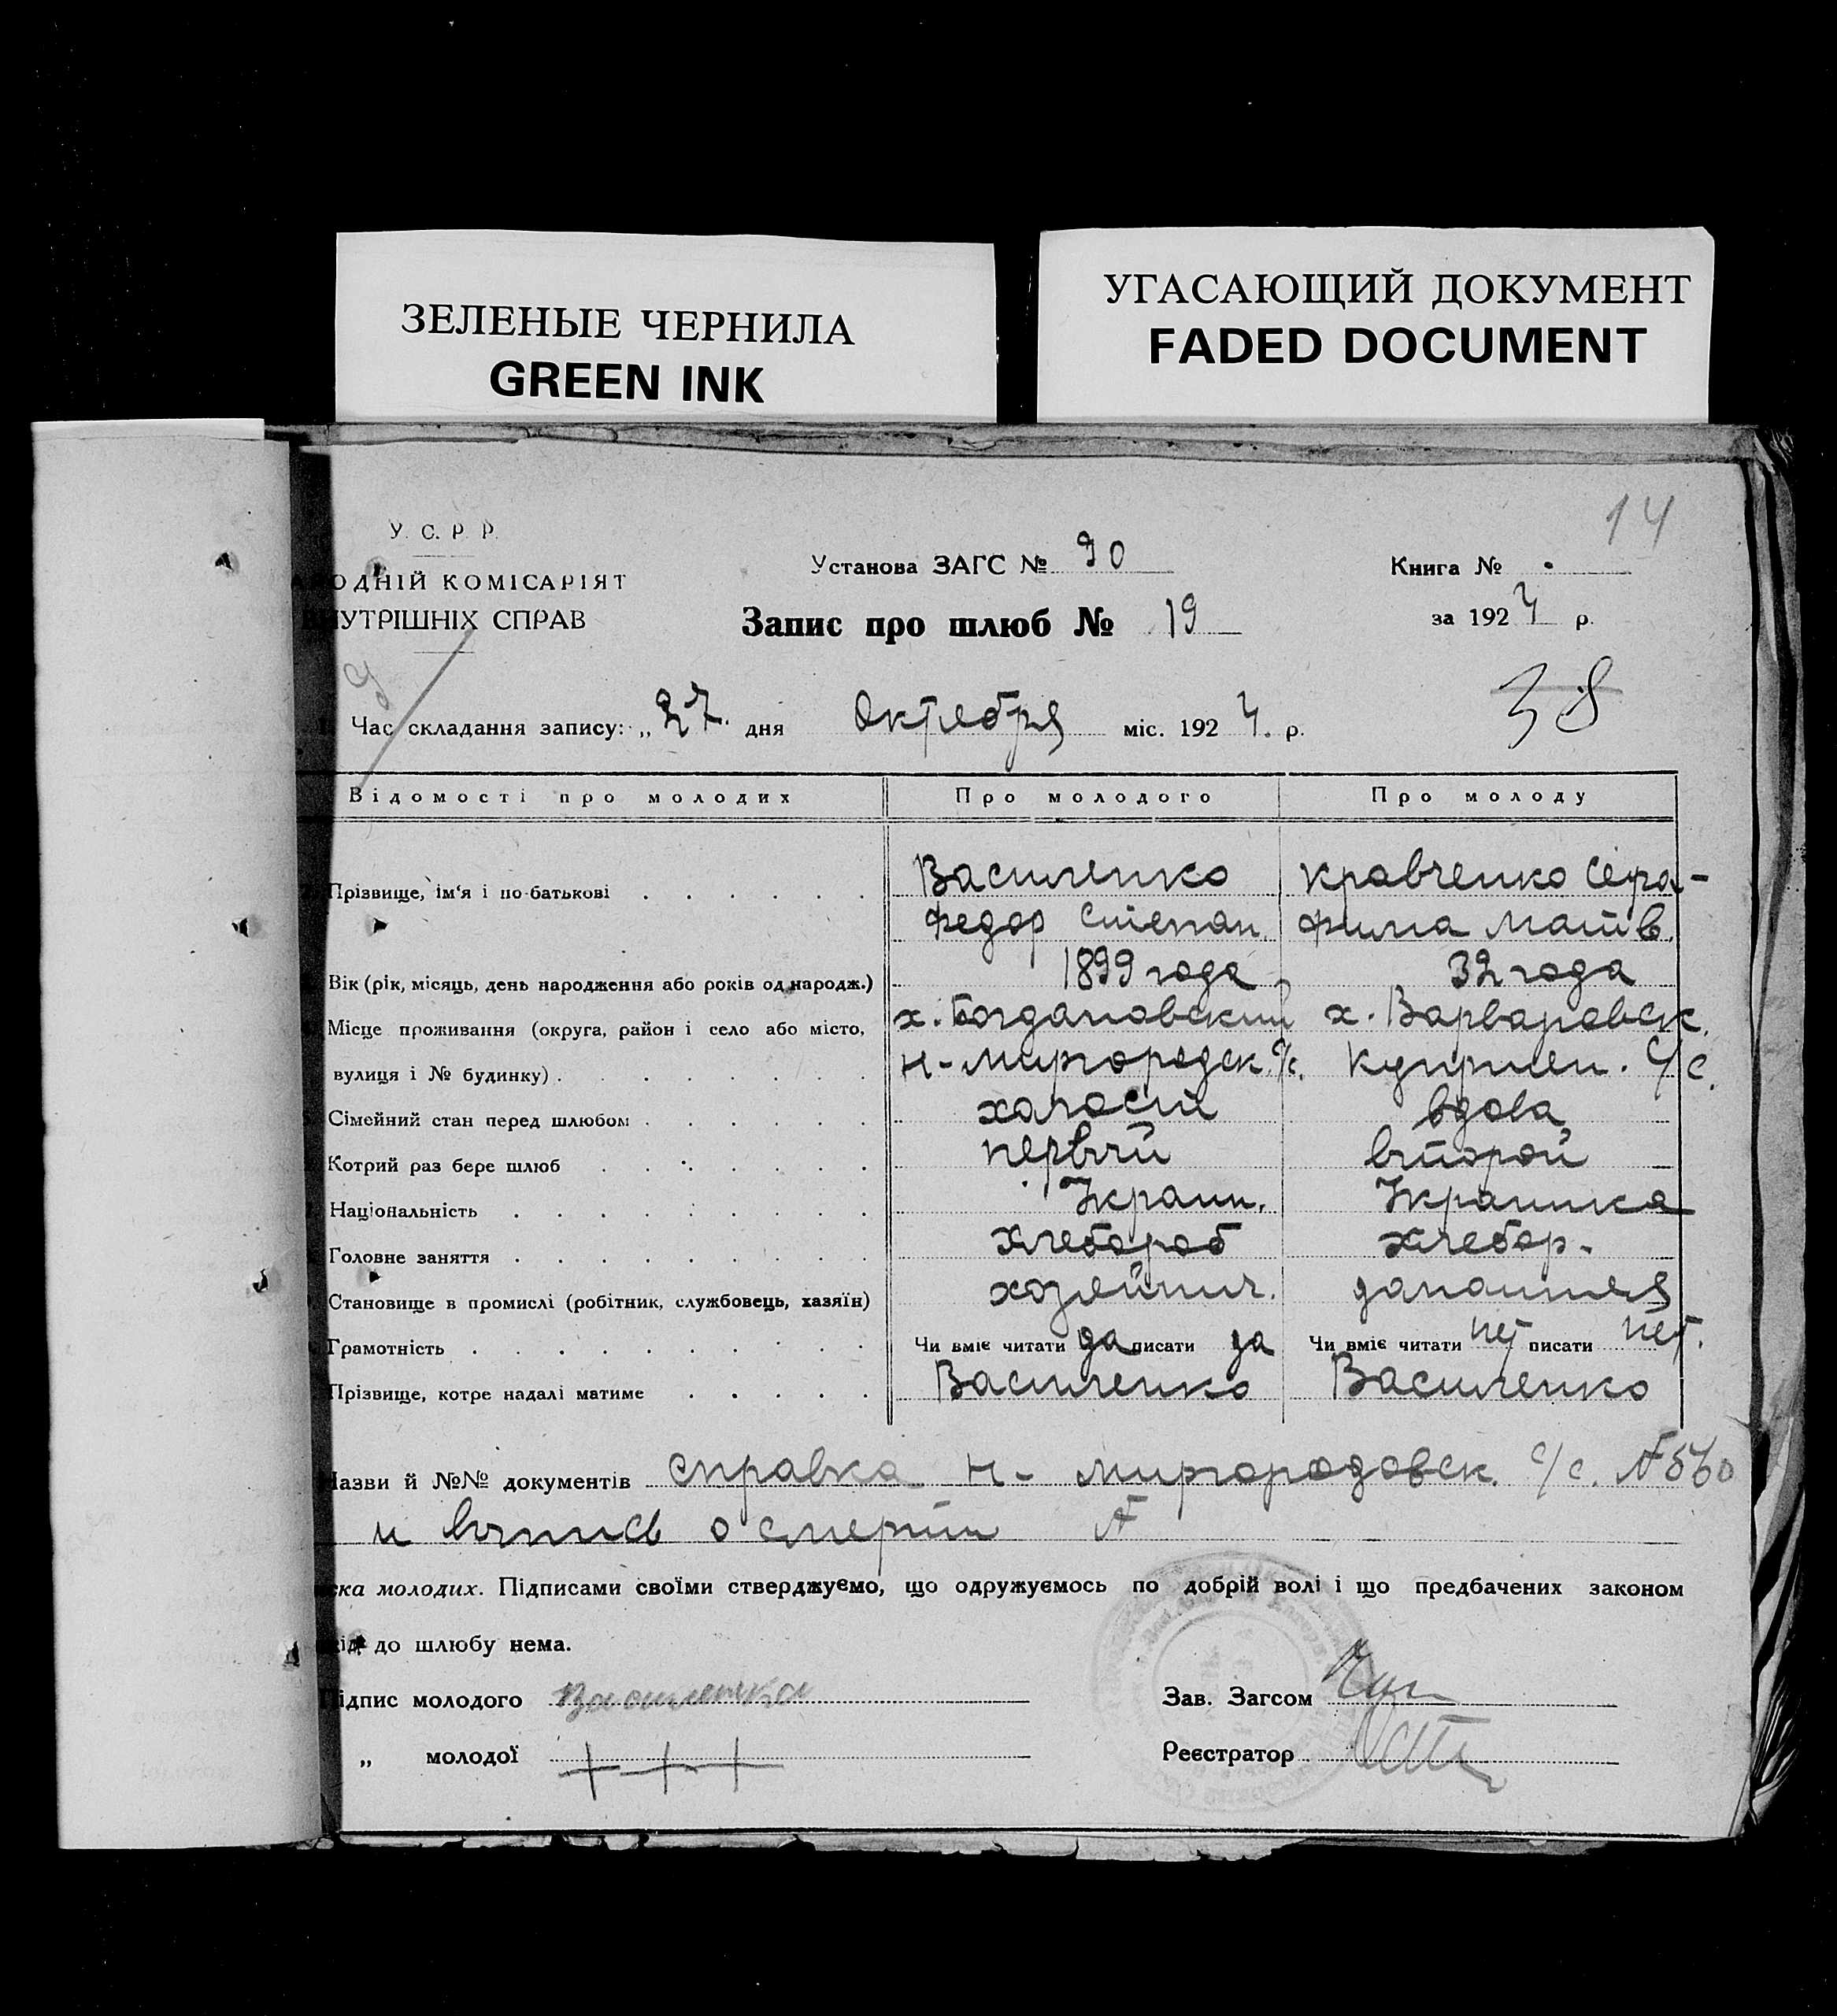 ЗЕЛЕНЫЕ ЧЕРНИЛА
GREEN INK
УГАСАЮЩИЙ ДОКУМЕНТ
FADED DOCUMENT
14
У. С. Р. Р.
Установа ЗАГС № 90
Книга №
ОДНІЙ КОМІСАРІЯТ
УТРІШНІХ СПРАВ
Запис про шлюб № 19
за 1927 р.
38
Час складання запису: „27. дня Октября міс. 1927. р.
Відомості про молодих Про молодого Про молоду
Прізвище, ім'я і по-батькові Василенко Кравченко Сера-
Федор Степан. фима Матв.
Вік (рік, місяць, день народження або років од народж.) 1899 года 32 года
Місце проживання (округа, район і село або місто, х. Богдановский х. Варваровск.
вулиця і № будинку) Н-Миргородск. с/с. Куприен. с/с.
Сімейний стан перед шлюбом холостй вдова
Котрий раз бере шлюб первый второй
Національність Украин. Украинка
Головне заняття хлебороб хлебор.
Становище в промислі (робітник, службовець, хазяїн) хозяйнич. домашняя
Грамотність Чи вміє читати да писати да Чи вміє читати нет писати нет.
Прізвище, котре надалі матиме Василенко Василенко
Назви й №№ документів справка Н- Миргородовск. с/с. №560
и выпись о смерти №
ска молодих. Підписами своїми стверджуємо, що одружуємось по добрій волі і що предбачених законом
до шлюбу нема.
Підпис молодого Василенко
Зав. Загсом
„ молодої + + +
Реєстратор